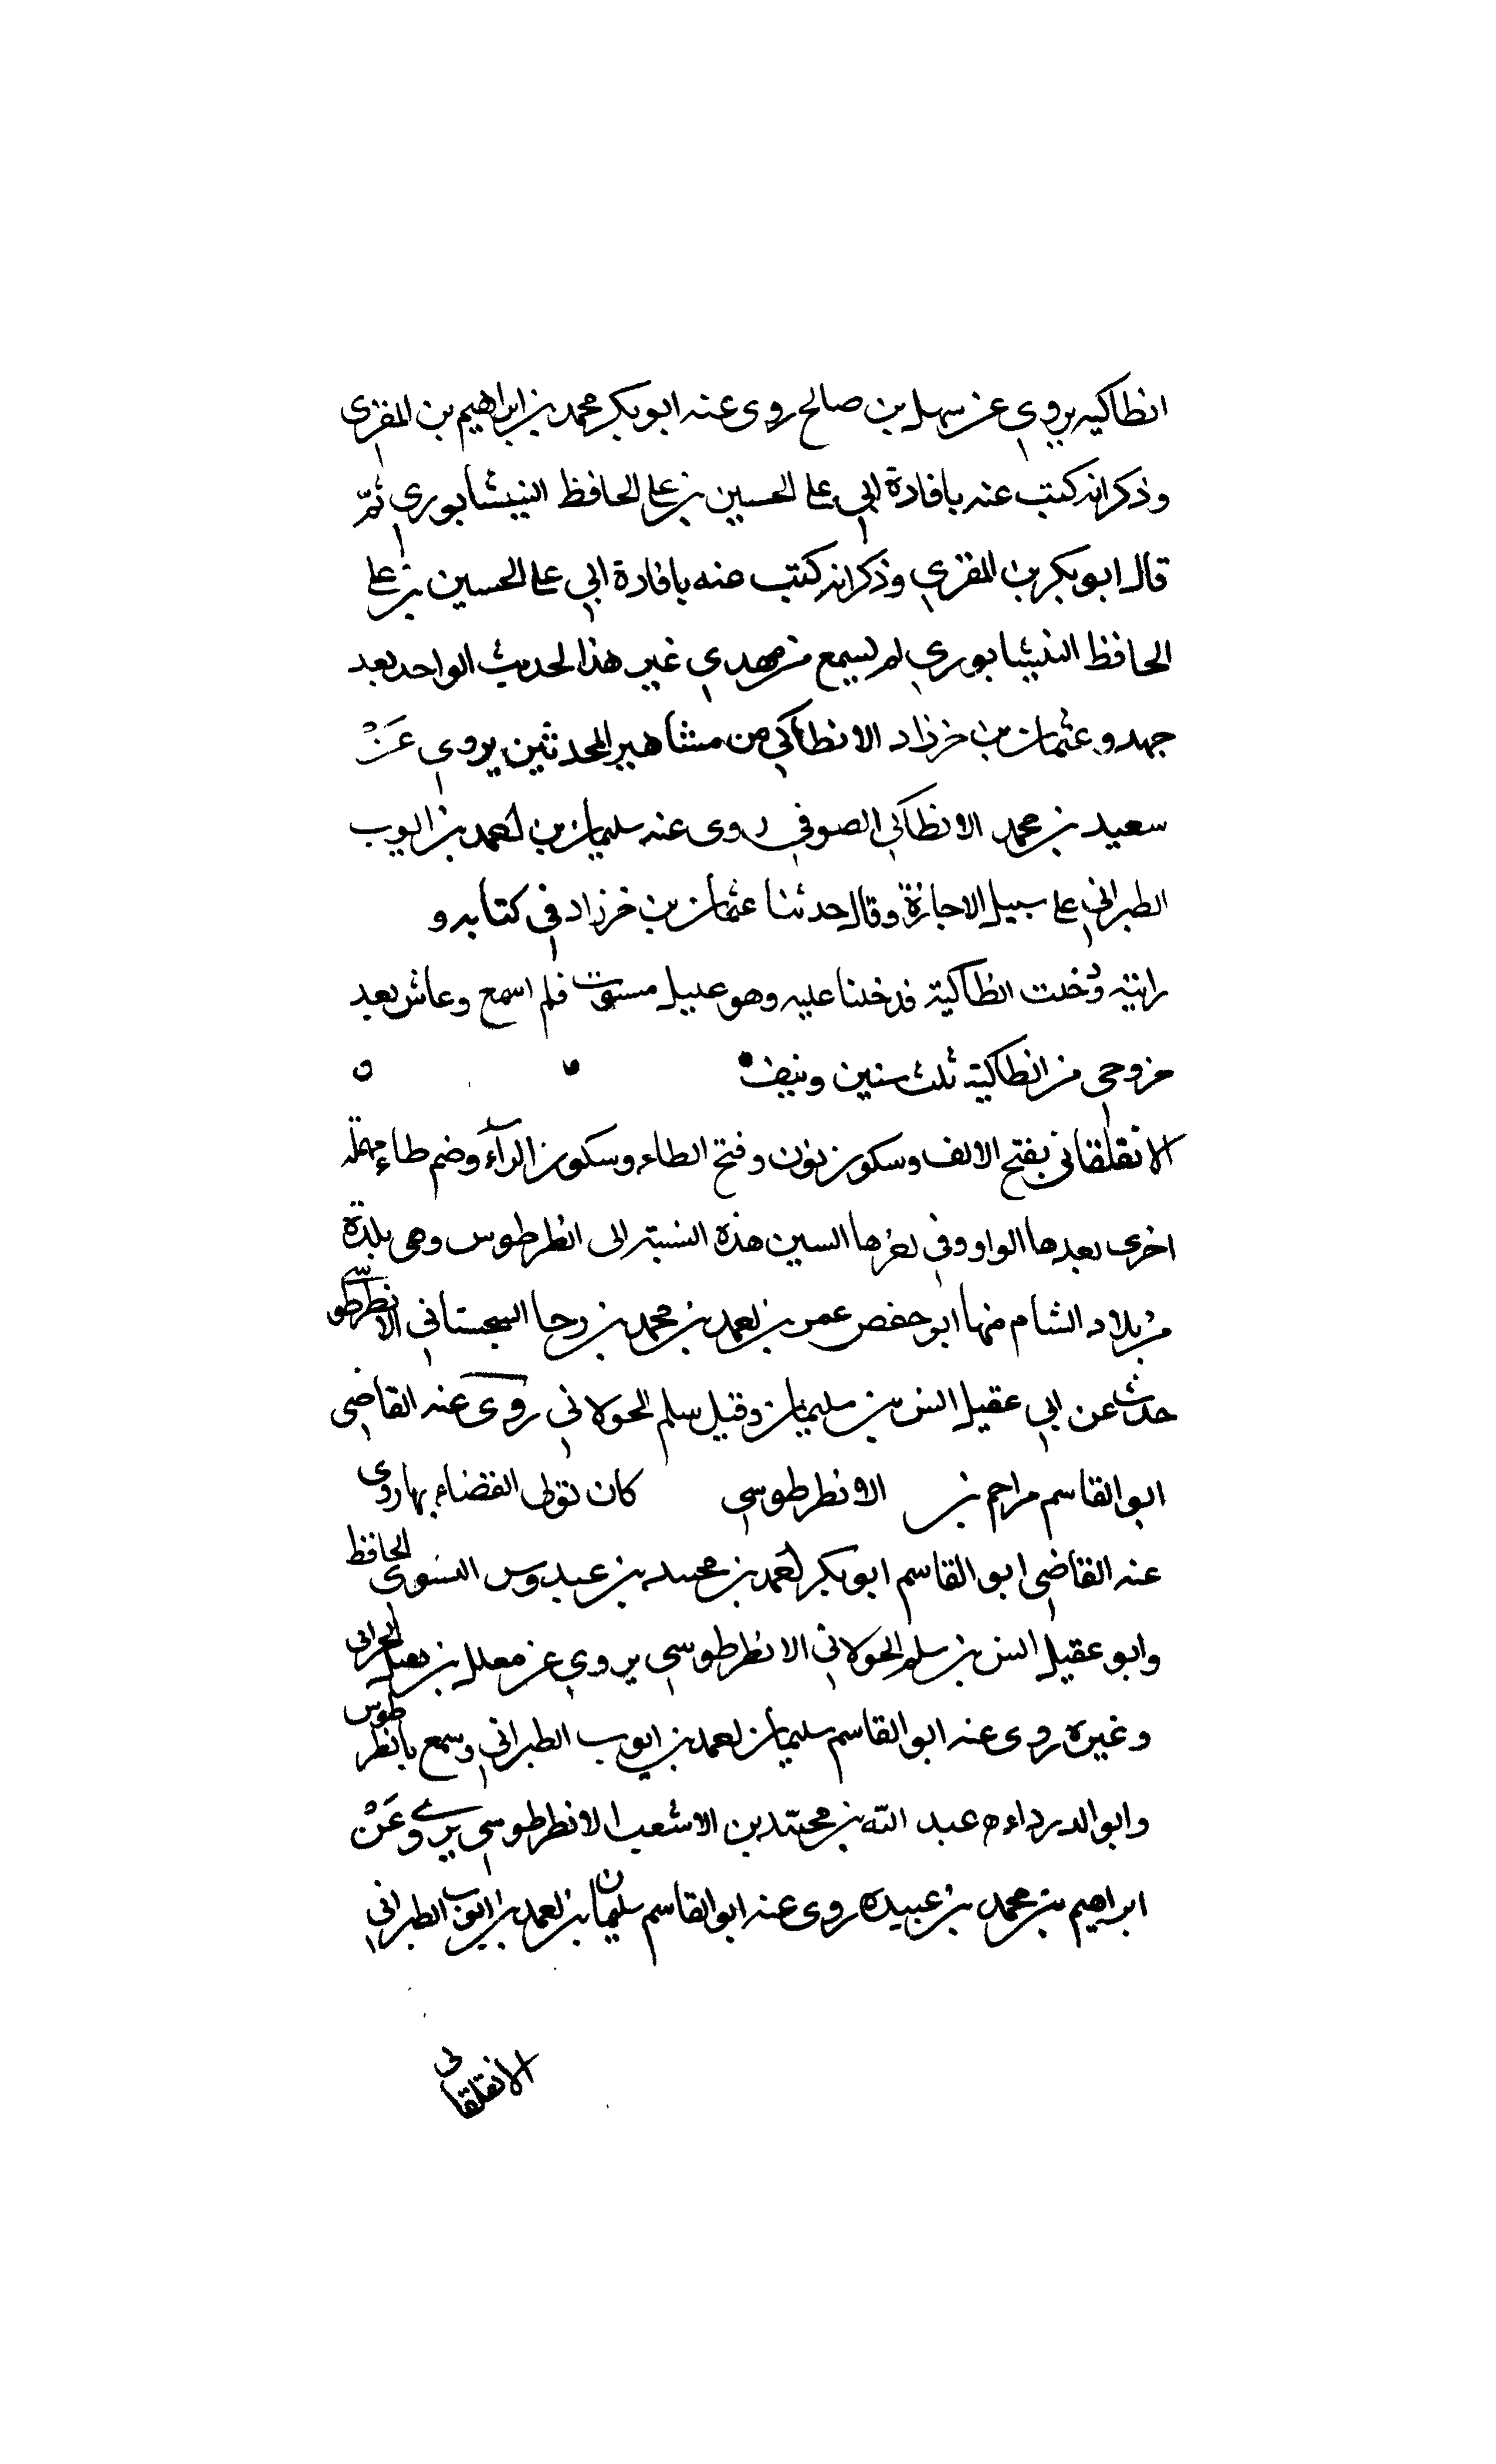 انطاكيه يروي عن سهل بن صالح روى عنه ابو بكر محمد بن ابراهيم بن المقرى
وذكر انه كتب عنه بافادة ابي على الحسين بن على الحافظ النيشابوري ثم
قال ابو بكر بن المقري وذكر انه كتب منه بافادة ابي على الحسين بن على
الحافظ النيشابوري لم يسمع من مهدي غير هذا الحديث الواحد بعد
جهد وعثمان بن خرزاد الانطاكي من مشاهير المحدثين يروي عن
سعيد بن محمد الانطاكي الصوفي روى عنه سليمان بن احمد بن ايوب
الطبراني على سبيل الاجازة وقال حدثنا عثمان بن خرزاد في كتابه و
رايته دخلت انطاكية فدخلنا عليه وهو عليل مسبوت فلم اسمع وعاش بعد
خروجي من انطاكية ثلث سنين ونيف
الانقلقاني بفتح الالف وسكون نون وفتح الطاء وسكون الرآء وضم طاء مهملة
اخرى بعدها الواو وفي اخرها السين هذه النسبة الى انطرطوس وهى بلدة
من بلاد الشام منها ابو حفص عمر بن احمد بن محمد بن رحا السجستاني الانطرطوسي
حدث عن ابي عقيل انس بن سليمان وقيل سلم الخولاني روى عنه القاضي
ابو القاسم مراحم بن الانطرطوسي كان تولى القضاء بها روى
عنه القاضي ابو القاسم ابو بكر احمد بن محمد بن عبدوس النسوى الحافظ
وابو عقيل انس بن سلم الخولاني الانطرطوسي يروي عن معلل بن نفيل الحراني
وغيره روى عنه ابو القاسم سليمان احمد بن ايوب الطبراني وسمع بانطرطوس
وابو الدرداء عبد الله بن محمد بن الاشعب الانطرطوسي يروي عن
ابراهيم بن محمد بن عبيده روى عنه ابو القاسم سليمان بن احمد بن ايوب الطبراني
الانقلقانى